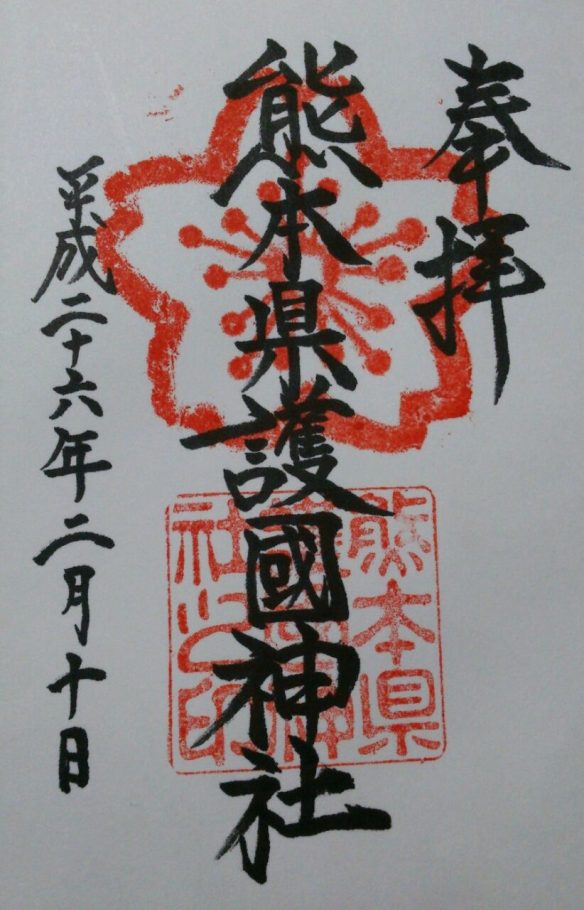 奉拝
熊本県護國神社
平成二十六年二月十日
熊本県
護國神
社之印